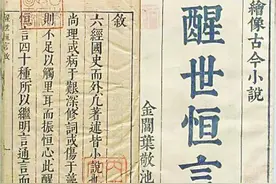 繪像古今小說
醒世恒言
金閶葉敬池
敘
六經國史而外凡著述皆小說也
尚理或病于艱深修詞或傷于藻
則不足以觸里耳而振恒心此醒
恒言四十種所以繼明言通言而